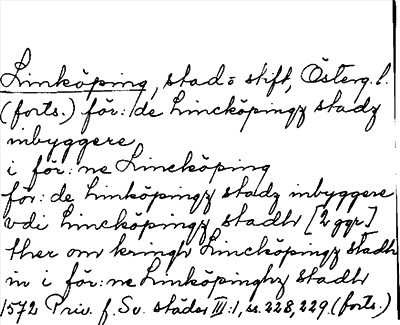 Linköping, stad = stift, Österg. l.
(forts.) för:de Lincköpingz stadz
inbyggere
i för:ne Lincköping
för:de Linköpingz stadz inbyggere
vdi Lincköpingz stadh [2 ggr.]
ther om kringh Lincköpingz stadh
in i för:ne Linköpinghz stadh
1572 Priv. f. Sv. städer III:1, ss. 228, 229 (forts.)